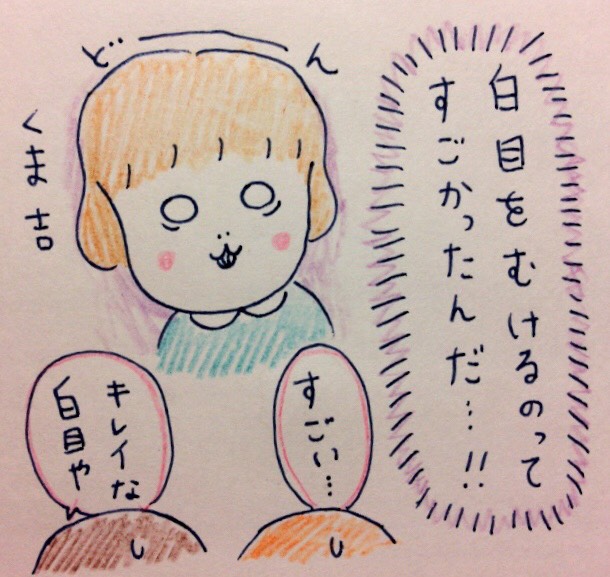 白目をむけるのって
すごかったんだ…!!
どーん
くま吉
すごい…
キレイな
白目や